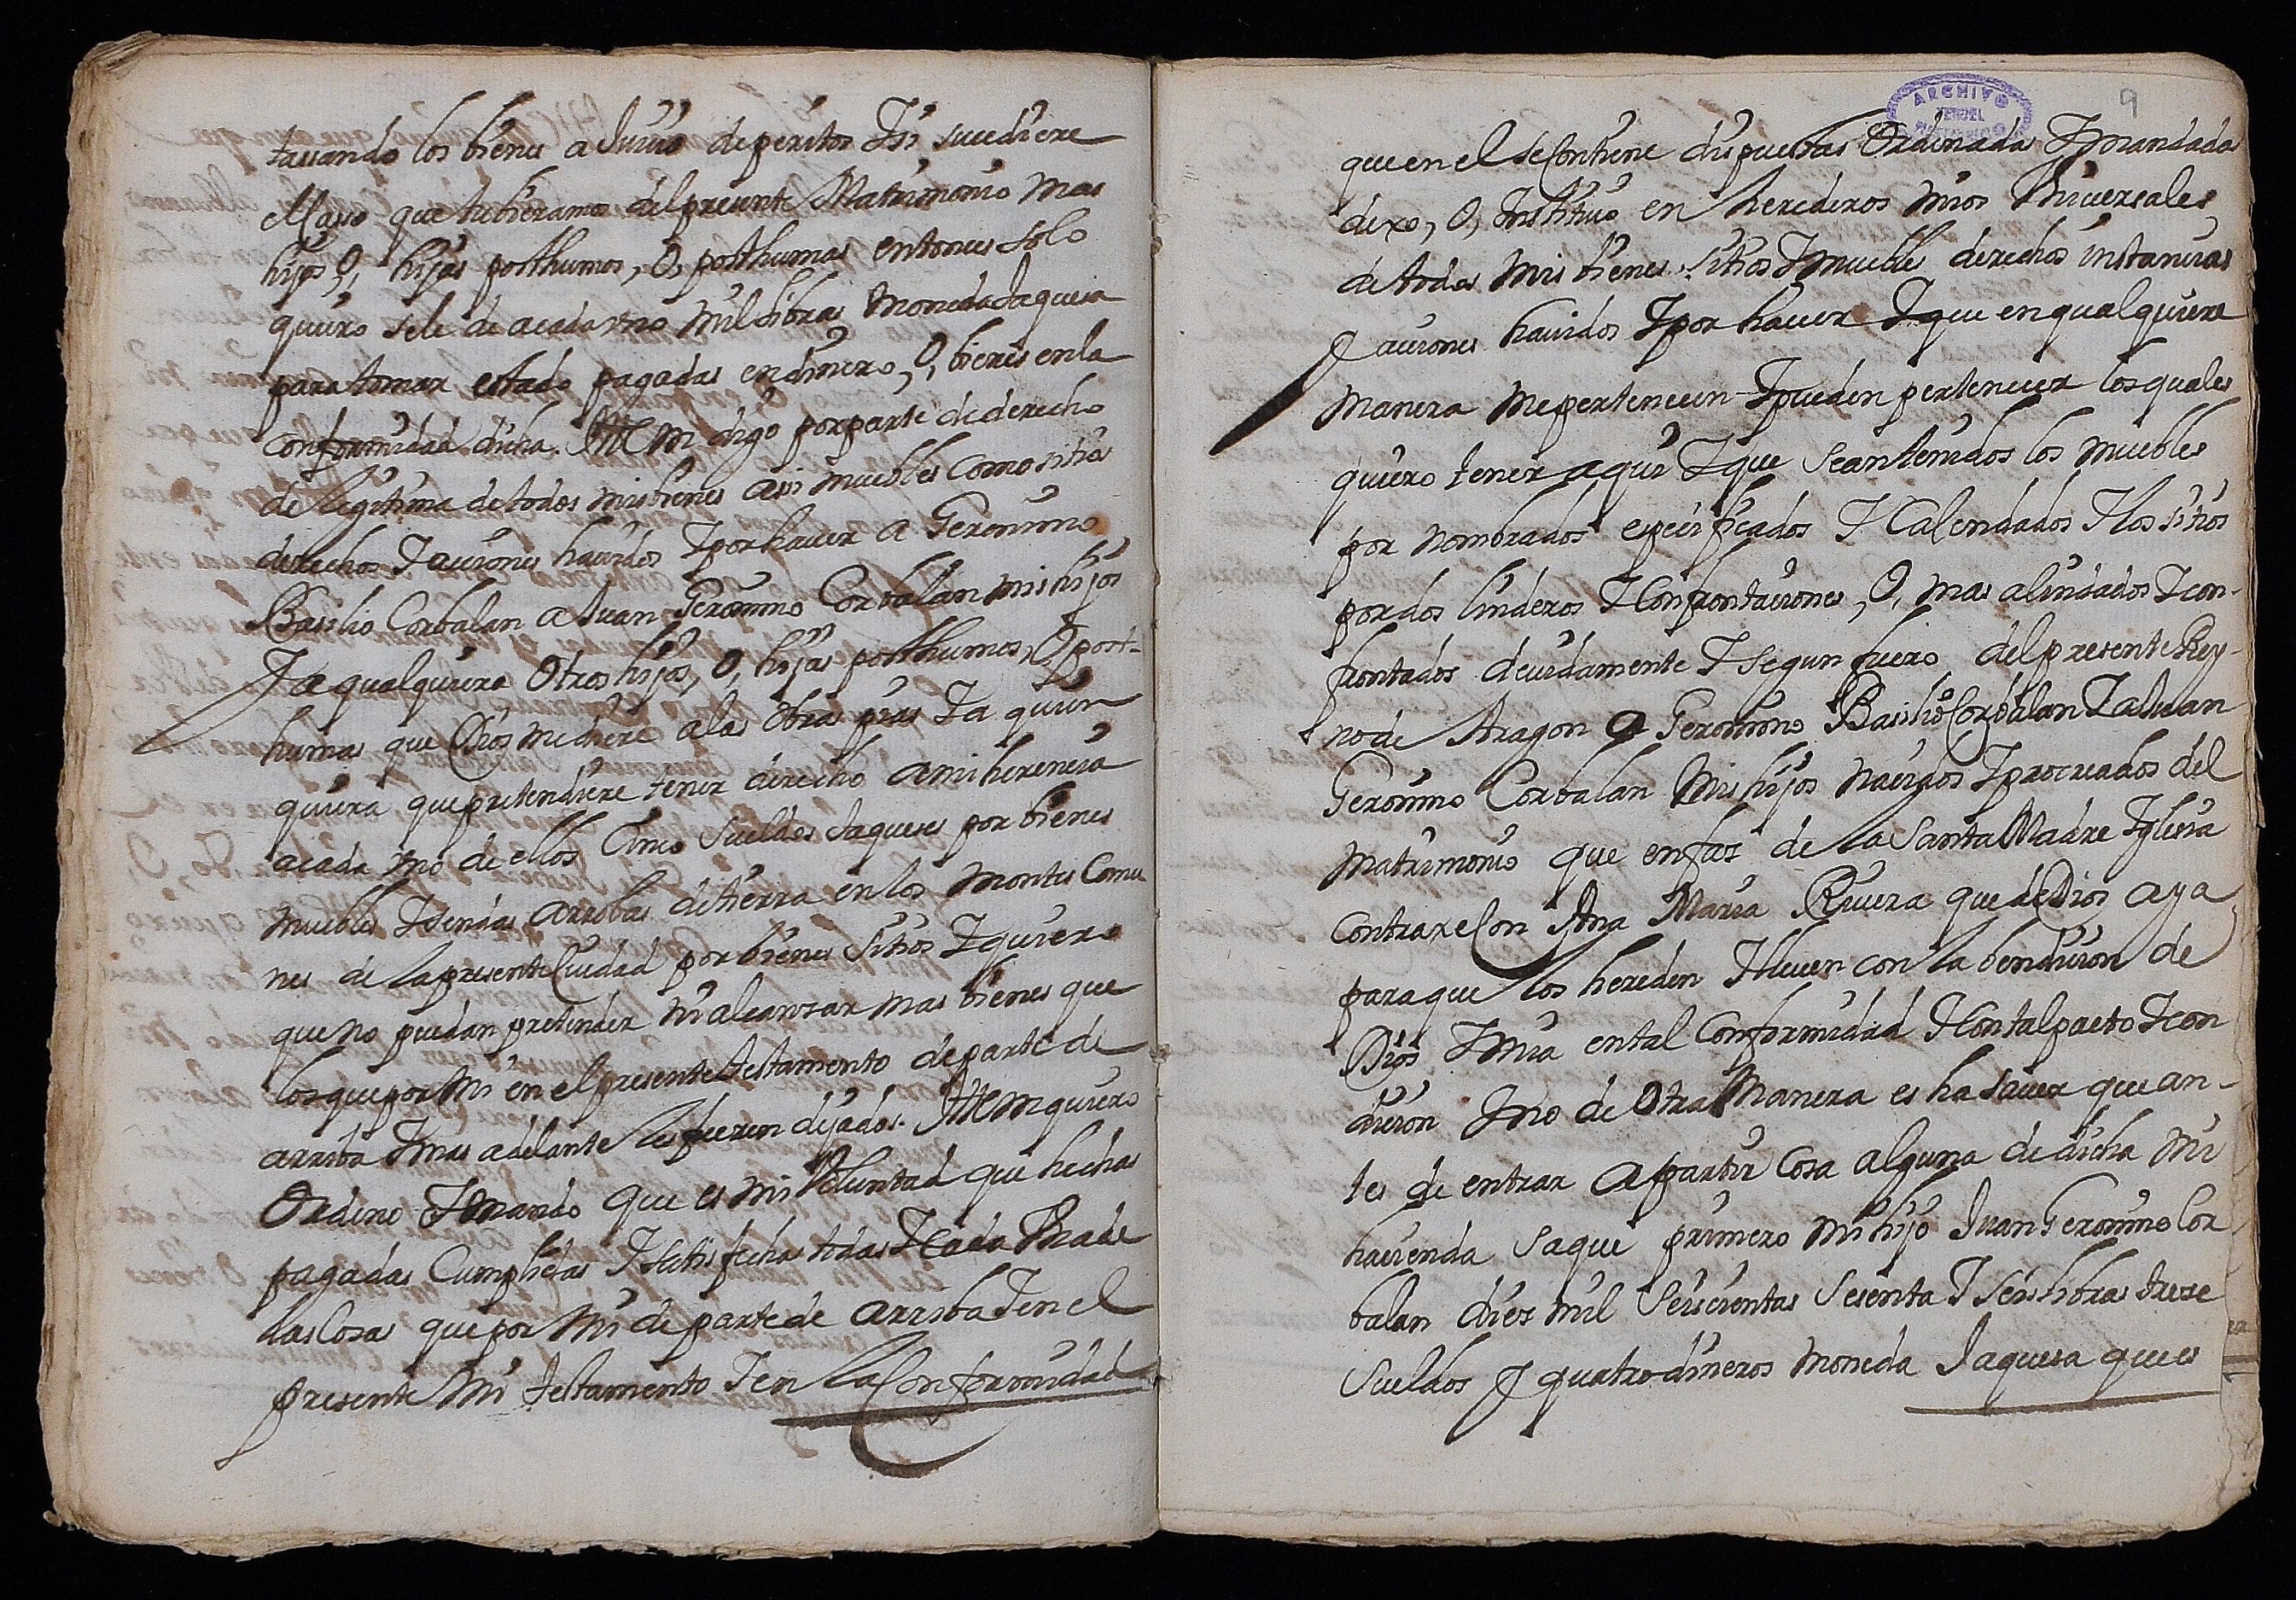 tassando los bienes a Juicio de peritos Y si sucediere
el Caso que tubieramos del presente Matrimonio mas
hijos, O, hijas posthumos, O, posthumas entonces solo
quiero sele de acada vno mil libras Moneda Jaquesa
para tomar estado pagadas en dinero, O, bienes en la
conformidad dicha. ITEM digo por parte de derecho
de legitima de todos mis bienes assi muebles como sitios
derechos Y acciones hauidos Y por hauer a Geronimo
Basilio Corbalan a Juan Geronimo Corbalan mis hijos
Y a qualquiera Otros hijos, O, hijas posthumos, O, post-
humas que Dios me diere a las obras pias Y a quien
quiera que pretendiere tener derecho a mi herencia
acada vno de ellos Cinco sueldos Jaqueses por bienes
muebles Y sendas arrobas de tierra en los montes Comu
nes de la presente Ciudad por bienes sitios Y quiero
que no puedan pretender ni alcanzar mas bienes que
los que por Mi en el presente testamento de parte de
arriba Y mas adelante les fueren dejados. ITEM quiero
Ordeno Y mando que es mi Voluntad que hechas
pagadas Cumplidas Y satisfechas todas Y Cada Vna de
las Cosas que por Mi de parte de arriba Y en el
presente Mi testamento Y en la Conformidad
ARCHIVO
TERUEL
9
que en el se Contiene dispuestas Ordenadas Y mandadas
dexo, O, Instituio en herederos mios Vniversales
de todos mis bienes sitios Y muebles derechos instancias
Y acciones hauidos Y por hauer Y que en qualquiere
Manera me pertenecen Y pueden pertenecer los quales
quiero tener aqui Y que sean tenidos los muebles
por nombrados especificados Y Calendados Y los sitios
por dos linderos Y Confrontaciones, O, mas alindados Y con-
frontados deuidamente Y segun fuero del presente Rey-
no de Aragon a Geronimo Basilio Corbalan Y a Juan
Geronimo Corbalan Mis hijos nacidos Y procreados del
Matrimonio que en faz de la Santa Madre Iglesia
Contraxe Con Ana Maria Riuera que de Dios aya
para que los hereden Y lleuen con la bendicion de
Dios Y mia en tal Conformidad Y Con tal pacto Y con
dicion Y no de Otra Manera es ha sauer que an-
tes de entrar a partir Cosa alguna de dicha mi
hacienda saque primero mi hijo Juan Geronimo Cor
balan diez mil seiscientas sesenta Y seis libras treze
sueldos Y quatro dineros moneda Jaquesa que es